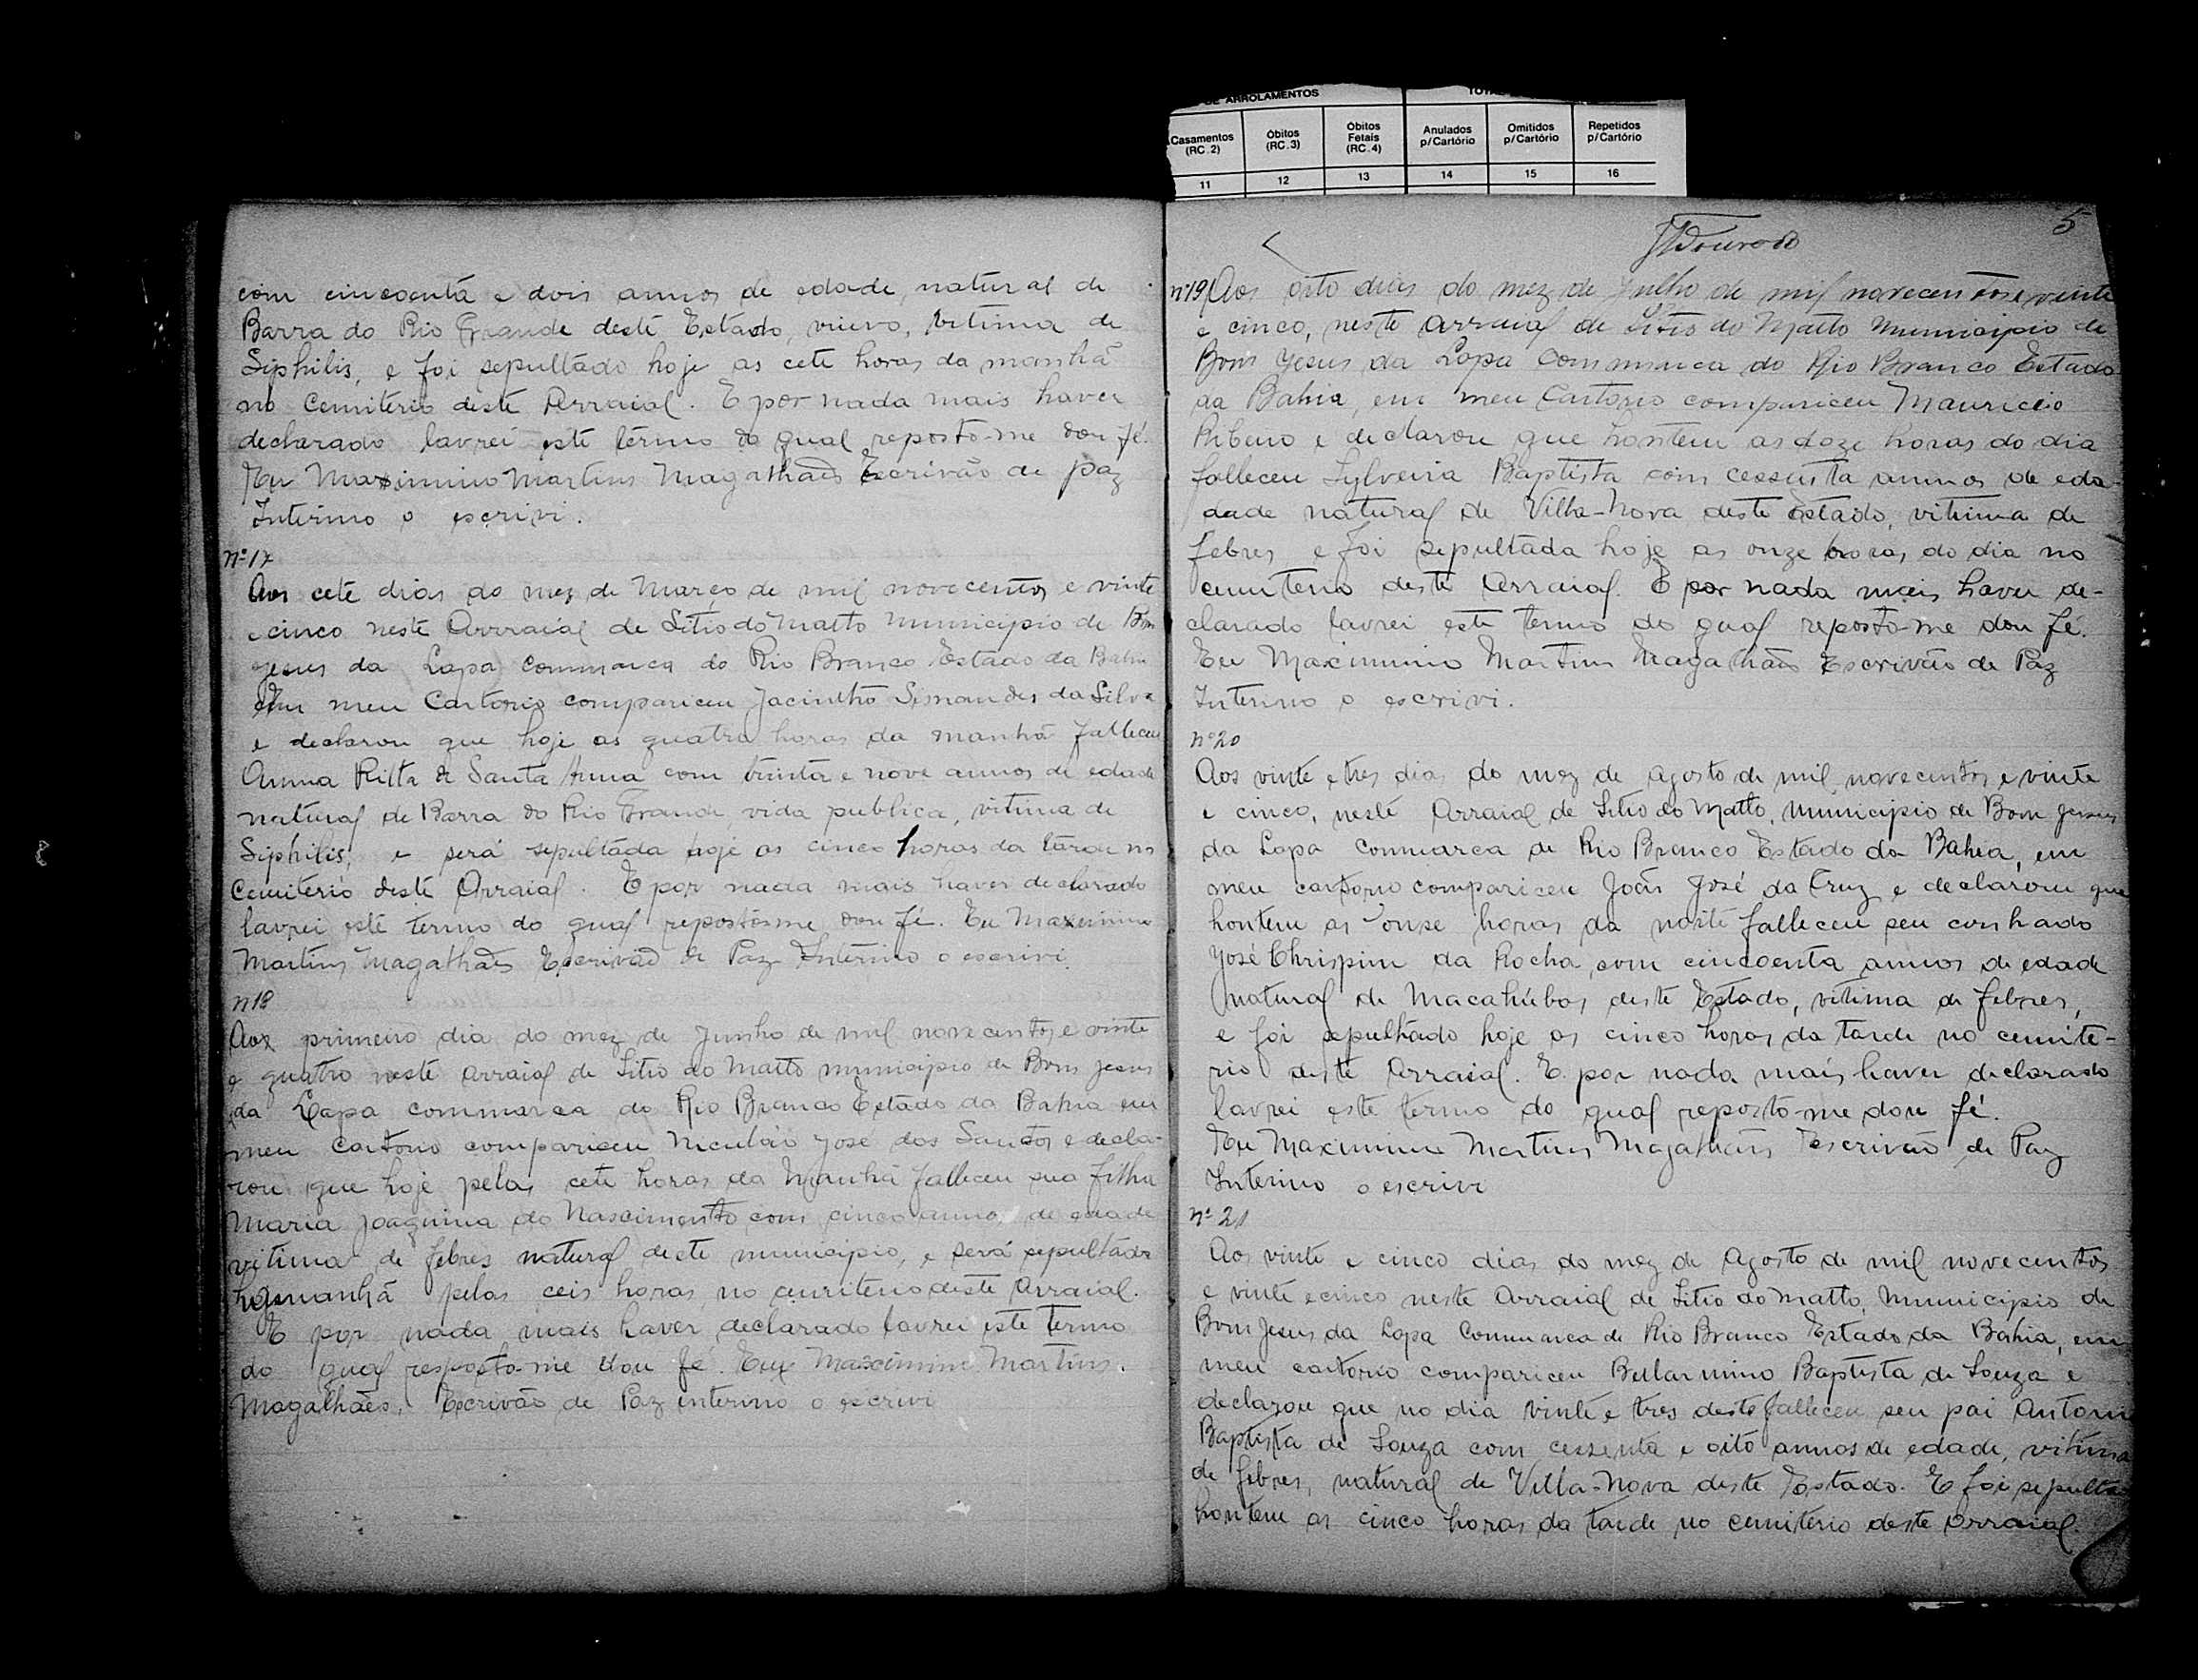 com cincoenta e dois annos de edade, natural de
Barra do Rio Grande deste Estado, viuvo, vitima de
Siphilis, e foi sepultado hoje as cete horas da manhã
no Cemiterio deste Arraial. E por nada mais haver
declarado lavrei este termo do qual reposto-me dou fé.
Eu Maximino Martins Magalhães Escrivão de paz
Interino o escrivi.
nº 17
Aos cete dias do mez de Março de mil novecentos e vinte
e cinco neste Arraial de Sitio do Matto Municipio de Bom
Jesus da Lapa Commarca do Rio Branco Estado da Bahia
Em meu Cartorio compariceu Jacintho Simandes da Silva
e declarou que hoje as quatro horas da manhã falleceu
Anna Ritta de Santa Anna com trinta e nove annos de edade
natural de Barra do Rio Grande, vida publica, vitima de
Siphilis, e será sepultada hoje as cinco horas da tarde no
Cemiterio deste Arraial. E por nada mais haver declarado
lavrei este termo do qual reposto-me dou fé. Eu Maximino
Martins Magalhães Escrivão de Paz Interino o escrivi.
n 18
Aos primeiro dia do mez de Junho de mil novecentos e vinte
e quatro neste arraial de Sitio do Matto municipio de Bom Jesus
da Lapa commarca do Rio Branco Estado da Bahia em
meu Cartorio compariceu Niculáo José dos Santos e decla-
rou que hoje pelas cete horas da Manhã falleceu sua filha
Maria Joaquina do Nascimento, com cinco annos de edade
vitima de febres natural deste municipio, e será sepultada
manhã pelas ceis horas no cemiterio deste arraial.
E por nada mais haver declarado lavrei este termo
do qual resposto-me dou fé. Eu Maximino Martins.
Magalhães, Escrivão de Paz interino o escrivi
DE ARROLAMENTOS
Casamentos (RC.2) Óbitos (RC.3) Óbitos Fetais (RC.4) Anulados p/Cartório Omitidos p/Cartório Repetidos p/Cartório
11 12 13 14 15 16
5
nº 19 Aos oito dias do mez de Julho de mil novecentos e vinte
e cinco, neste arraial de Sitio do Matto Municipio de
Bom Jesus da Lapa Commarca do Rio Branco Estado
da Bahia, em meu Cartorio compariceu Mauricio
Ribeiro e declarou que hontem as doze horas do dia
falleceu Sylveria Baptista com cessenta annos de eda-
dade natural de Villa-Nova deste Estado, vitima de
febres e foi sepultada hoje as onze horas do dia no
cemiterio deste Arraial. E por nada mais haver de-
clarado lavrei este termo do qual reposto-me dou fé.
Eu Maximino Martins Magalhães Escrivão de Paz
Interino o escrivi.
nº 20
Aos vinte e tres dias do mez de agosto de mil novecentos e vinte
e cinco, neste Arraial de Sitio do Matto, Municipio de Bom Jesus
da Lapa Commarca de Rio Branco Estado da Bahia, em
meu cartorio compariceu João José da Cruz e declarou que
hontem as onse horas da noite falleceu seu cunhado
José Chrispim da Rocha, com cincoenta annos de edade
natural de Macahúbas deste Estado, vitima de febres,
e foi sepultado hoje as cinco horas da tarde no cemite-
rio deste Arraial. E por nada mais haver declarado
lavrei este termo do qual reposto-me dou fé.
Eu Maximino Martins Magalhães Escrivão de Paz
Interino o escrivi
nº 21
Aos vinte e cinco dias do mez de Agosto de mil novecentos
e vinte e cinco neste Arraial de Sitio do Matto, Municipio de
Bom Jesus da Lapa Commarca de Rio Branco Estado da Bahia, em
meu cartorio compariceu Bellarmino Baptista de Souza e
declarou que no dia vinte e tres deste falleceu seu pai Antonio
Baptista de Souza com cessenta e oito annos de edade, vitima
de febres, natural de Villa-Nova deste Estado. E foi sepulta
hontem as cinco horas da tarde no cemiterio deste arraial.